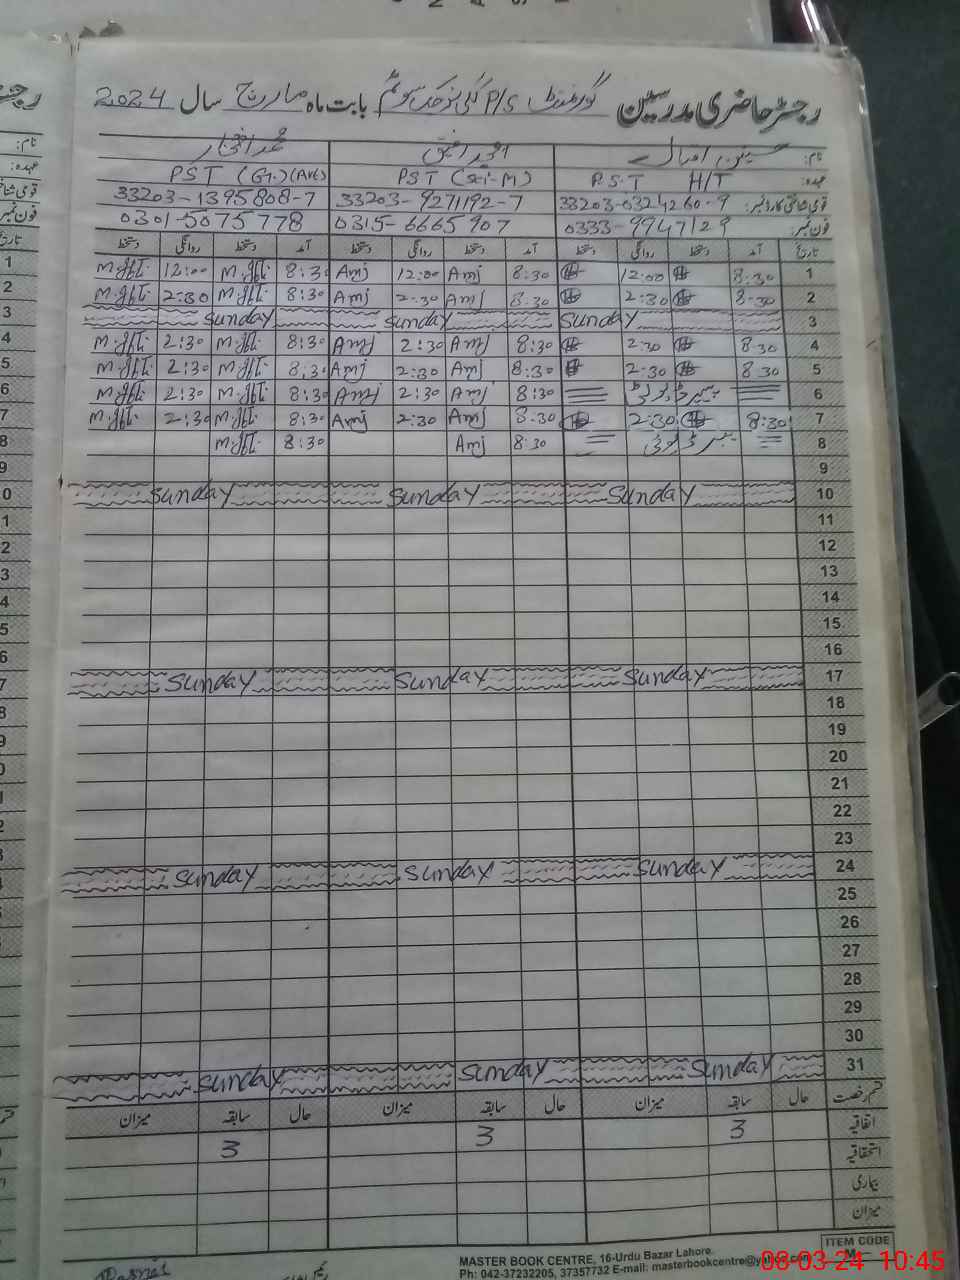 رجسٹر حاضری مدرسین گورنمنٹ P/S بابت ماہ مارچ سال 2024
نام: حسنین اقبال
محمد افتخار
عہدہ: P.S.T H/T PST (Sci-M) PST (G.)(Art)
قومی شناختی کارڈ نمبر: 33203-0324260-9 33203-9271192-7 33203-1395808-7
فون نمبر: 0333-9947129 0315-6665907 0301-5075778
تاریخ آمد دستخط روانگی دستخط آمد دستخط روانگی دستخط آمد دستخط روانگی دستخط
1 8:30 12:00 8:30 Amj 12:00 Amj 8:30 12:00
2 8:30 2:30 8:30 Amj 2:30 Amj 8:30 2:30
3 Sunday Sunday Sunday
4 8:30 2:30 8:30 Amj 2:30 Amj 8:30 2:30
5 8:30 2:30 8:30 Amj 2:30 Amj 8:30 2:30
6 8:30 Amj 2:30 Amj 8:30 2:30
7 8:30 2:30 8:30 Amj 2:30 Amj 8:30 2:30
8 ڈیوٹی 8:30 Amj 8:30
9
10 Sunday Sunday Sunday
11
12
13
14
15
16
17 Sunday Sunday Sunday
18
19
20
21
22
23
24 Sunday Sunday Sunday
25
26
27
28
29
30
31 Sunday Sunday Sunday
قسم رخصت حال سابقہ میزان حال سابقہ میزان حال سابقہ میزان
اتفاقیہ 3 3 3
استحقاقیہ
بیماری
میزان
ITEM CODE
M
MASTER BOOK CENTRE, 16-Urdu Bazar Lahore.
Ph: 042-37232205, 37357732 E-mail: masterbookcentre@yahoo.com
08-03-24 10:45